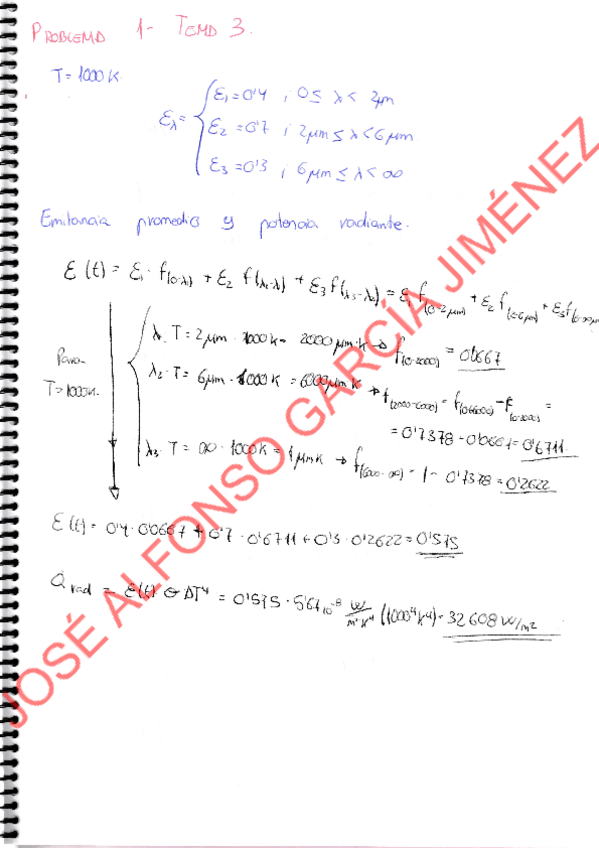 PROBLEMA 1- TEMA 3.
T = 1000 K
ε₁ = 0'4 ; 0 ≤ λ < 2μm
ελ = { ε₂ = 0'7 ; 2μm ≤ λ < 6μm
ε₃ = 0'3 ; 6μm ≤ λ < ∞
Emitancia promedio y potencia radiante.
ε(t) = ε₁ · f(0-λ₁) + ε₂ f(λ₁-λ₂) + ε₃ f(λ₃-λ₂) = ε₁ f(0-2μm) + ε₂ f + ε₃ f
λ₁ T = 2μm · 1000 K = 2000 μm·K → f(0-2000) = 0'0667
Para T = 1000K.
λ₂ · T = 6μm · 1000 K = 6000μm K → f(2000-6000) = f(0-6000) - f(0-2000) =
= 0'7378 - 0'0667 = 0'6711
λ₃ · T = ∞ · 1000K = μmK → f(6000-∞) = 1 - 0'7378 = 0'2622
ε(t) = 0'4 · 0'0667 + 0'7 · 0'6711 + 0'3 · 0'2622 = 0'575
Q rad = ε(t) σ ΔT⁴ = 0'575 · 5'67 10⁻⁸ W/m²K⁴ (1000⁴K⁴) = 32608 W/m²
JOSÉ ALFONSO GARCÍA JIMÉNEZ